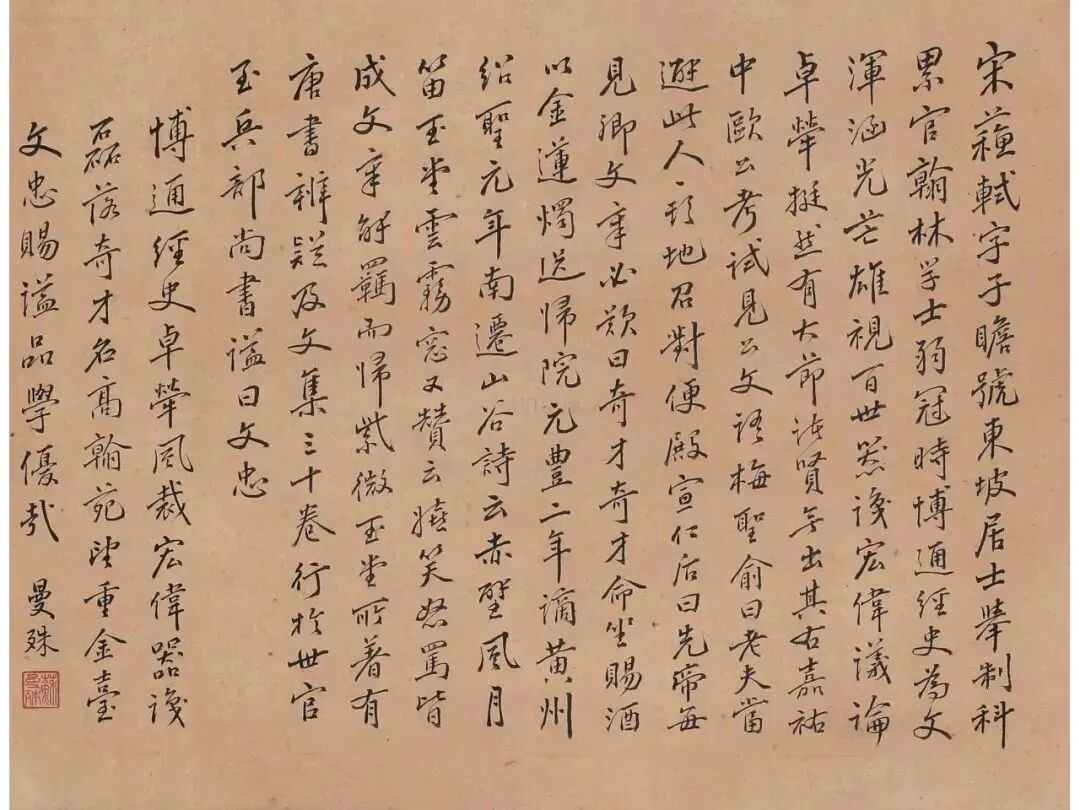 宋蘓軾字子瞻號東坡居士舉制科
累官翰林学士弱冠時博通經史為文
渾涵光芒雄視百世器識宏偉議論
卓犖挺然有大節諸賢無出其右嘉祐
中歐公考試見公文語梅聖俞曰老夫當
避此人一頭地召對便殿宣仁后曰先帝每
見卿文章必歎曰奇才奇才命坐賜酒
以金蓮燭送帰院元豊二年謫黄州
紹聖元年南遷山谷詩云赤壁風月
笛玉堂雲霧窓又贊云嬉笑怒罵皆
成文章解羈而帰紫微玉堂所著有
唐書辨疑及文集三十卷行於世官
至兵部尚書謚曰文忠
博通經史卓犖風裁宏偉器識
磊落奇才名高翰苑望重金臺
文忠賜謚品學優哉
曼殊
蘇曼殊